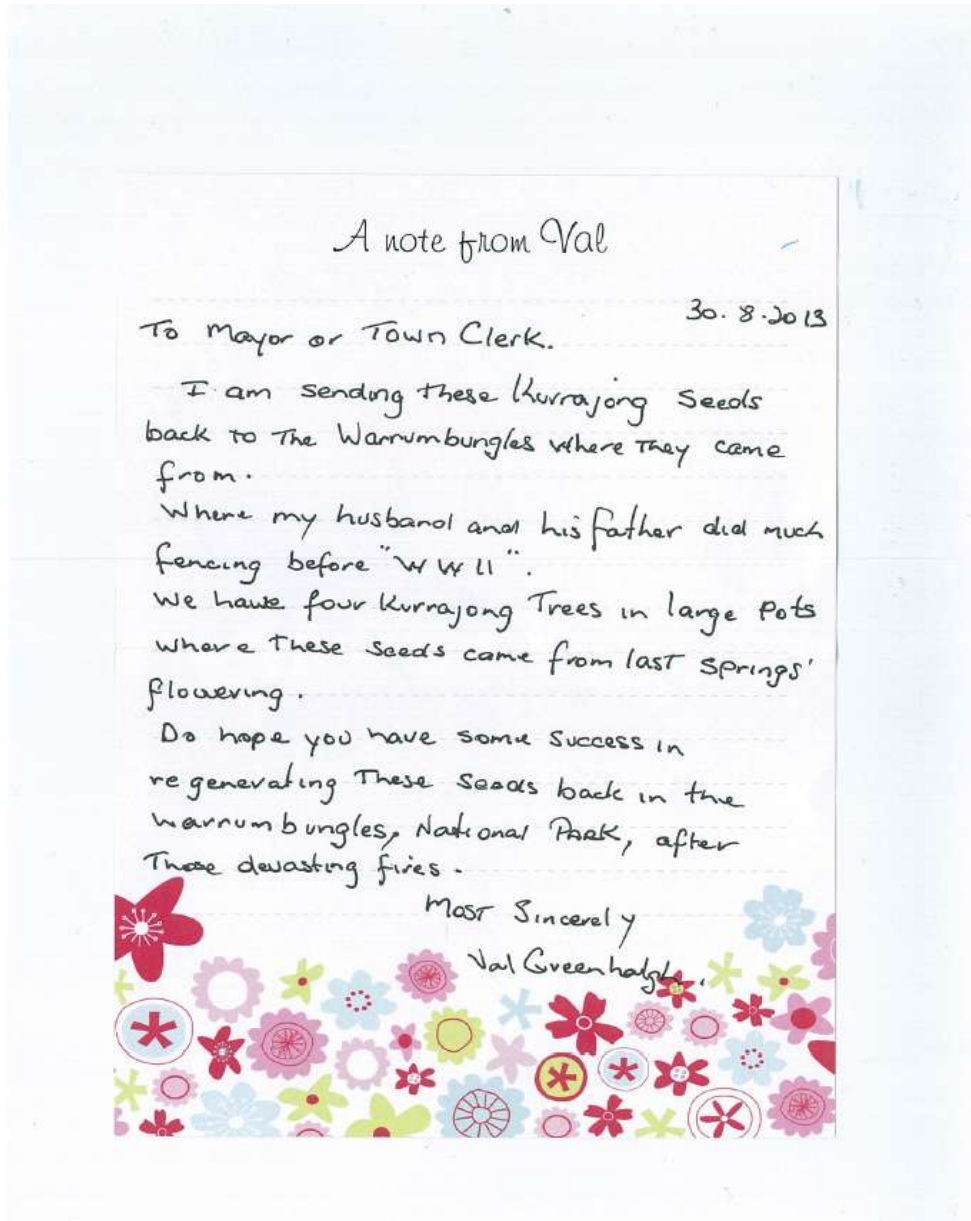 A note from Val
30.8.2013
To Mayor or Town Clerk.
I am sending these Kurrajong Seeds
back to The Warrumbungles where They came
from.
Where my husband and his father did much
fencing before "WWII".
We have four Kurrajong Trees in large Pots
where These Seeds came from last springs'
flowering.
Do hope you have some success in
regenerating These Seeds back in the
Warrumbungles, National Park, after
Those devasting fires.
Most Sincerely
Val Greenhalgh.